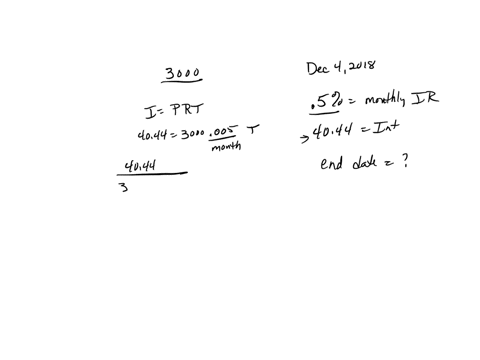 3000
I = PRT
40.44 = 3000 .005 T
month
40.44
3
Dec 4, 2018
.5% = monthly IR
→ 40.44 = Int
end date = ?